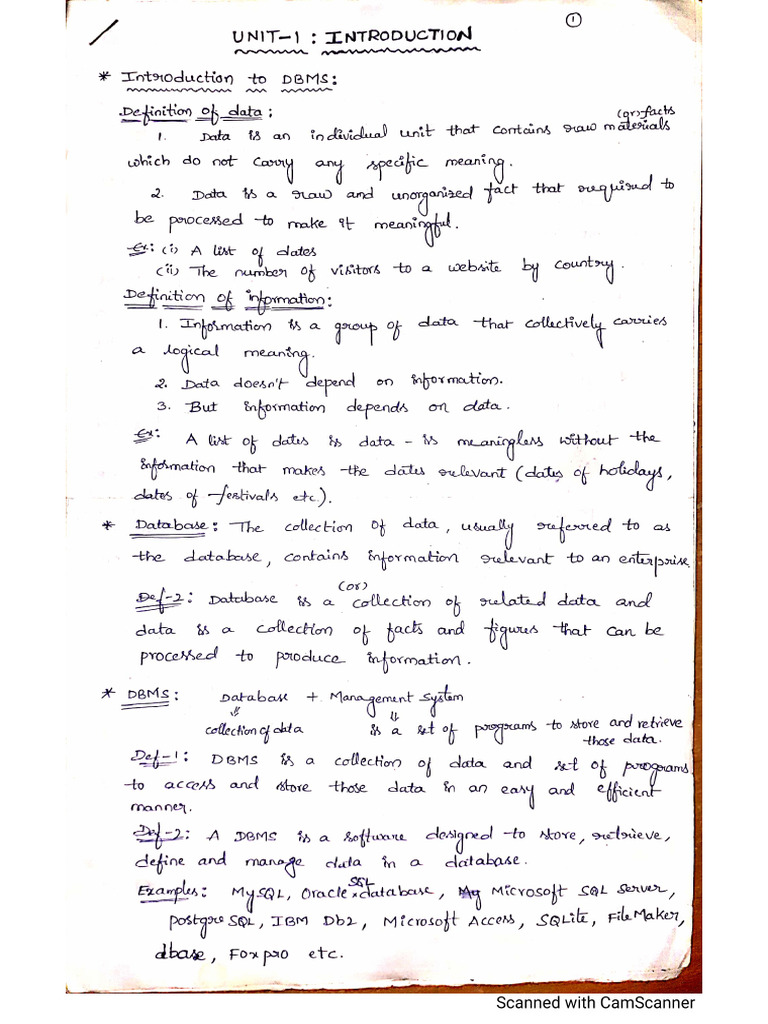 1
UNIT-1 : INTRODUCTION
* Introduction to DBMS:
Definition of data:
(or) facts
1. Data is an individual unit that contains raw materials
which do not carry any specific meaning.
2. Data is a raw and unorganized fact that required to
be processed to make it meaningful.
Ex: (i) A list of dates
(ii) The number of visitors to a website by country.
Definition of information:
1. Information is a group of data that collectively carries
a logical meaning.
2. Data doesn't depend on information.
3. But information depends on data.
Ex: A list of dates is data - is meaningless without the
information that makes the dates relevant (dates of holidays,
dates of festivals etc).
* Database: The collection of data, usually referred to as
the database, contains information relevant to an enterprise
(or)
Def-2: Database is a collection of related data and
data is a collection of facts and figures that can be
processed to produce information.
* DBMS: Database + Management System
⇓ ⇓
collection of data is a set of programs to store and retrieve
those data.
Def-1: DBMS is a collection of data and set of programs
to access and store those data in an easy and efficient
manner.
Def-2: A DBMS is a software designed to store, retrieve,
define and manage data in a database.
SQL
Examples: MySQL, Oracle database, Microsoft SQL Server,
postgreSQL, IBM Db2, Microsoft Access, SQLite, FileMaker,
dbase, Foxpro etc.
Scanned with CamScanner